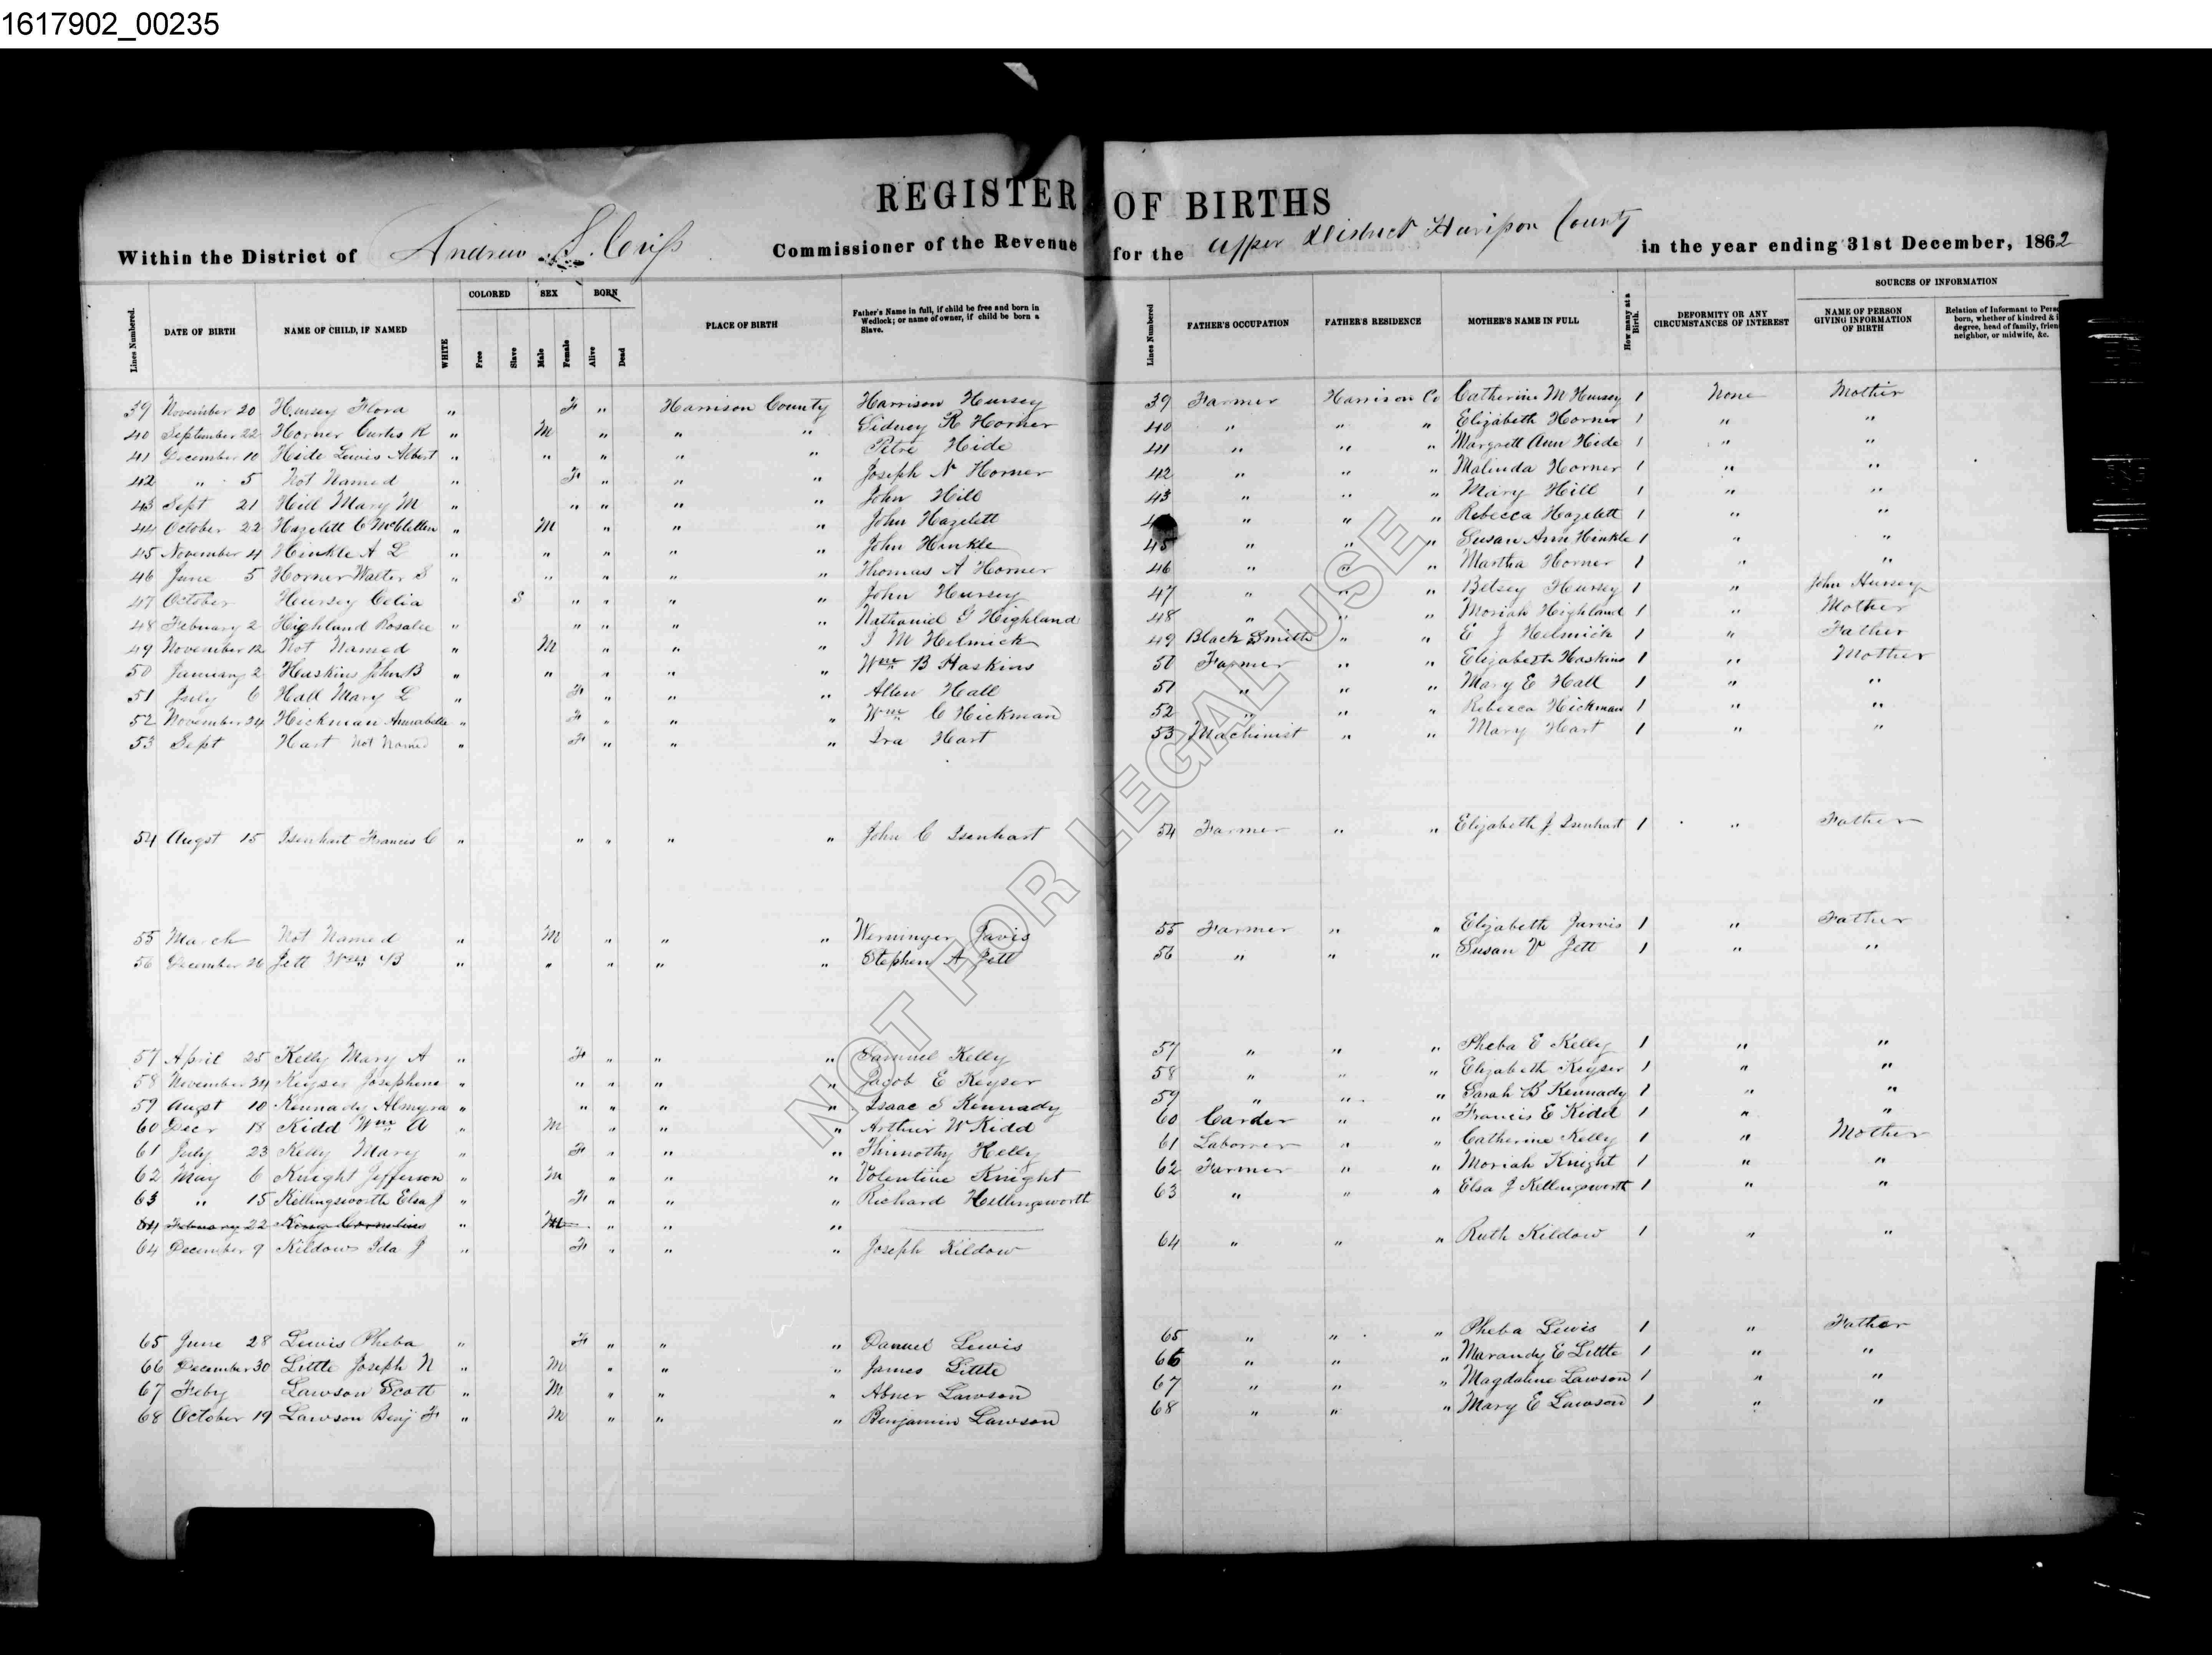 1617902_00235
REGISTER OF BIRTHS
Within the District of Andrew S. Criss Commissioner of the Revenue for the Upper District Harrison County in the year ending 31st December, 1862
Lines Numbered. DATE OF BIRTH NAME OF CHILD, IF NAMED WHITE COLORED Free Slave SEX Male Female BORN Alive Dead PLACE OF BIRTH Father's Name in full, if child be free and born in Wedlock; or name of owner, if child be born a Slave. Lines Numbered FATHER'S OCCUPATION FATHER'S RESIDENCE MOTHER'S NAME IN FULL How many at a Birth. DEFORMITY OR ANY CIRCUMSTANCES OF INTEREST SOURCES OF INFORMATION NAME OF PERSON GIVING INFORMATION OF BIRTH Relation of Informant to Pers born, whether of kindred & degree, head of family, frien neighbor, or midwife, &c.
39 November 20 Hursey Flora " F " Harrison County Harrison Hursey 39 Farmer Harrison Co Catherine M Hursey 1 None Mother
40 September 22 Horner Curtis K " M " " " Sidney R Horner 40 " " " Elizabeth Horner 1 " "
41 December 10 Hide Lewis Albert " " " " " Petre Hide 41 " " " Margrett Ann Hide 1 " "
42 " 5 Not Named " F " " " Joseph N Horner 42 " " " Malinda Horner 1 " "
43 Sept 21 Hill Mary M " " " " " John Hill 43 " " " Mary Hill 1 " "
44 October 22 Hazelett C McClellen " M " " " John Hazelett " " " Rebecca Hazelett 1 " "
45 November 4 Hinkle A L " " " " " John Hinkle 45 " " " Susan Ann Hinkle 1 " "
46 June 5 Horner Walter S " " " " " Thomas A Horner 46 " " " Martha Horner 1 " "
47 October Hursey Celia S " " " " John Hursey 47 " " " Betsey Hursey 1 " John Hursey
48 February 2 Highland Rosalie " " " " " Nathaniel G Highland 48 " " " Moriah Highland 1 " Mother
49 November 12 Not Named " M " " " J M Helmick 49 Black Smith " " E J Helmick 1 " Father
50 January 2 Haskins John B " " " " " Wm B Haskins 50 Farmer " " Elizabeth Haskins 1 " Mother
51 July 6 Hall Mary L " F " " " Allen Hall 51 " " " Mary E Hall 1 " "
52 November 24 Hickman Annabelle " F " " " Wm C Hickman 52 " " " Rebecca Hickman 1 " "
53 Sept Hart Not Named " F " " " Ira Hart 53 Machinist " " Mary Hart 1 " "
54 Augst 15 Isenhart Francis C " " " " " John C Isenhart 54 Farmer " " Elizabeth J Isenhart 1 " Father
55 March Not Named " M " " " Werninger Javis 55 Farmer " " Elizabeth Jarvis 1 " Father
56 December 26 Jett Wm B " " " " " Stephen A Jett 56 " " " Susan V Jett 1 " "
57 April 25 Kelly Mary A " F " " " Samuel Kelly 57 " " " Pheba E Kelly 1 " "
58 November 24 Keyser Josephine " " " " " Jacob E Keyser 58 " " " Elizabeth Keyser 1 " "
59 Augst 10 Kennady Almyra " " " " " Isaac S Kennady 59 " " " Sarah B Kennady 1 " "
60 Decr 18 Kidd Wm A " M " " " Arthur W Kidd 60 Carder " " Francis E Kidd 1 " "
61 July 23 Kelly Mary " F " " " Thimothy Kelly 61 Laborrer " " Catherine Kelly 1 " Mother
62 May 6 Knight Jefferson " M " " " Volentine Knight 62 Farmer " " Moriah Knight 1 " "
63 " 15 Killingsworth Elsa J " F " " " Richard Hellingsworth 63 " " " Elsa J Kellingsworth 1 " "
64 February 22 King Cornelius " M " " "
64 December 9 Kildow Ida J " F " " " Joseph Kildow 64 " " " Ruth Kildow 1 " "
65 June 28 Lewis Pheba " F " " " Daniel Lewis 65 " " " Pheba Lewis 1 " Father
66 December 30 Little Joseph N " M " " " James Little 66 " " " Marandy E Little 1 " "
67 Feby Lawson Scott " M " " " Abner Lawson 67 " " " Magdaline Lawson 1 " "
68 October 19 Lawson Benj F " M " " " Benjamin Lawson 68 " " " Mary E Lawson 1 " "
NOT FOR LEGAL USE